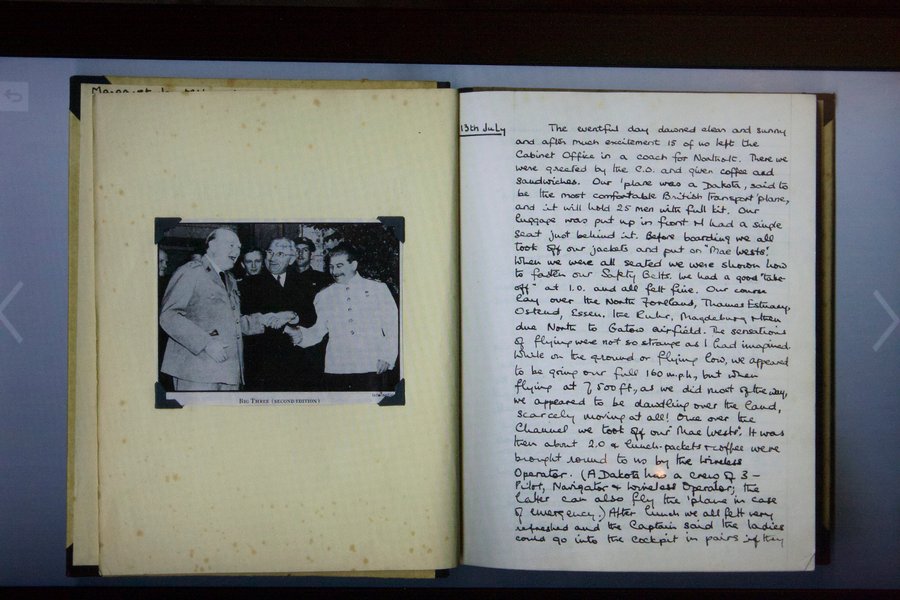 13th July
The eventful day dawned clear and sunny
and after much excitement 15 of us left the
Cabinet Office in a coach for Northolt. There we
were greeted by the C.O. and given coffee and
sandwiches. Our 'plane was a Dakota, said to
be the most comfortable British Transport 'plane,
and it will hold 25 men with full kit. Our
luggage was put up in front & I had a single
seat just behind it. Before boarding we all
took off our jackets and put on 'Mae Wests'.
When we were all seated we were shown how
to fasten our Safety Belts. We had a good "take-
off" at 1.0. and all felt fine. Our course
lay over the North Foreland, Thames Estuary,
Ostend, Essen, the Ruhr, Magdeburg & then
due North to Gatow airfield. The sensations
of flying were not so strange as I had imagined.
While on the ground or flying low, we appeared
to be going our full 160 m.p.h., but when
flying at 7,500 ft., as we did most of the way,
we appeared to be dawdling over the land,
scarcely moving at all! Once over the
Channel we took off our 'Mae Wests'. It was
then about 2.0 & lunch-packets & coffee were
brought round to us by the Wireless
Operator. (A Dakota has a crew of 3 –
Pilot, Navigator & Wireless Operator; the
latter can also fly the 'plane in case
of emergency.) After lunch we all felt very
refreshed and the Captain said the ladies
could go into the cockpit in pairs if they
BIG THREE (SECOND EDITION)